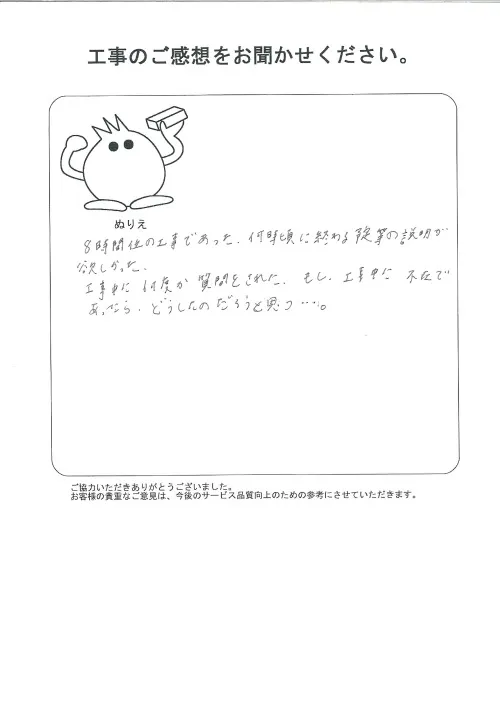 工事のご感想をお聞かせください。
ぬりえ
8時間位の工事であった、何時頃に終わる予定等の説明が
欲しかった、
工事中に 何度か 質問をされた、もし、工事中に 不在で
あったら、どうしたのだろうと思う…。
ご協力いただきありがとうございました。
お客様の貴重なご意見は、今後のサービス品質向上のための参考にさせていただきます。